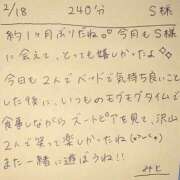 2/18 240分 S様
約1ヶ月ぶりだね。今月もS様
に会えて、とっても嬉しかったよ♡
今日も2人でベッドで気持ち良いこと
した後に、いつものモグモグタイムで
食事しながらズートピアを見て、沢山
2人で笑って楽しかったね(*^-^*)
また一緒に遊ぼうね!!